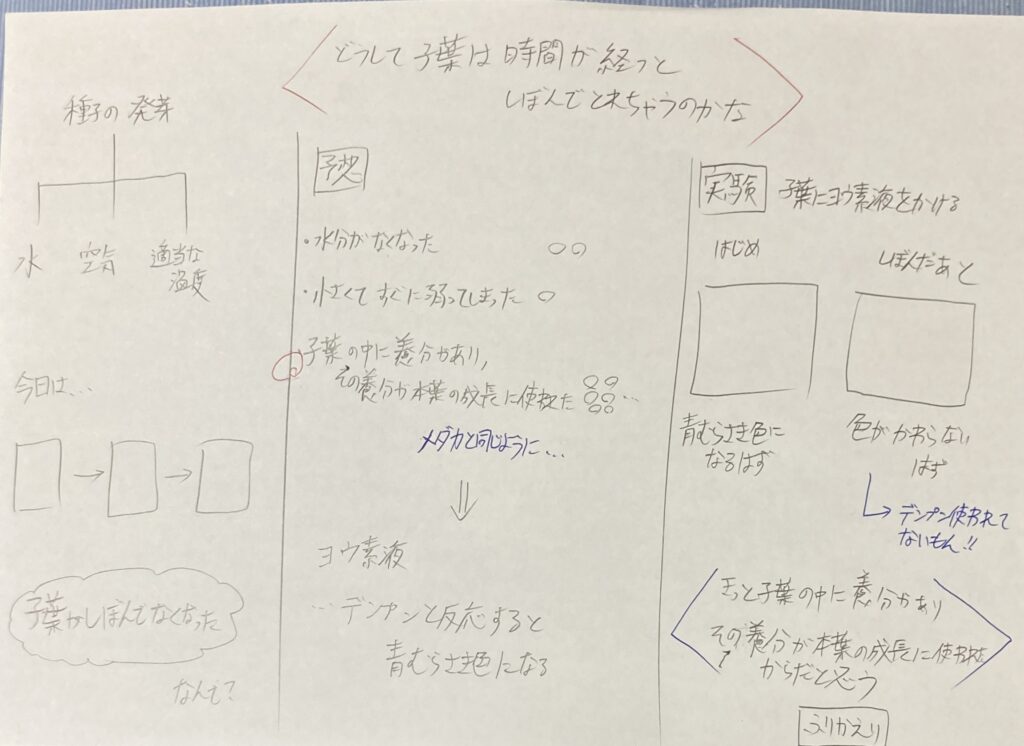 どうして子葉は時間が経つと
しぼんでとれちゃうのかな
種子の発芽
水 空気 適当な
温度
今日は…
子葉がしぼんでなくなった
なんで?
予想
・水分がなくなった
・小さくてすぐに弱ってしまった
子葉の中に養分があり,
その養分が本葉の成長に使われた
メダカと同じように…
ヨウ素液
…デンプンと反応すると
青むらさき色になる
実験 子葉にヨウ素液をかける
はじめ しぼんだあと
青むらさき色に
なるはず
色がかわらない
はず
デンプン使われて
ないもん!!
きっと子葉の中に養分があり
その養分が本葉の成長に使われた
からだと思う
ふりかえり